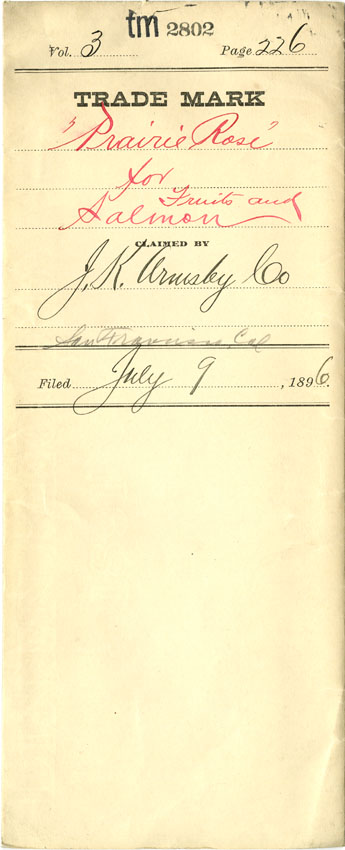 tm 2802
Vol. 3 Page 226
TRADE MARK
"Prairie Rose"
for
Fruits and
Salmon
CLAIMED BY
J. K. Armsby Co
San Francisco, Cal
Filed July 9, 1896.